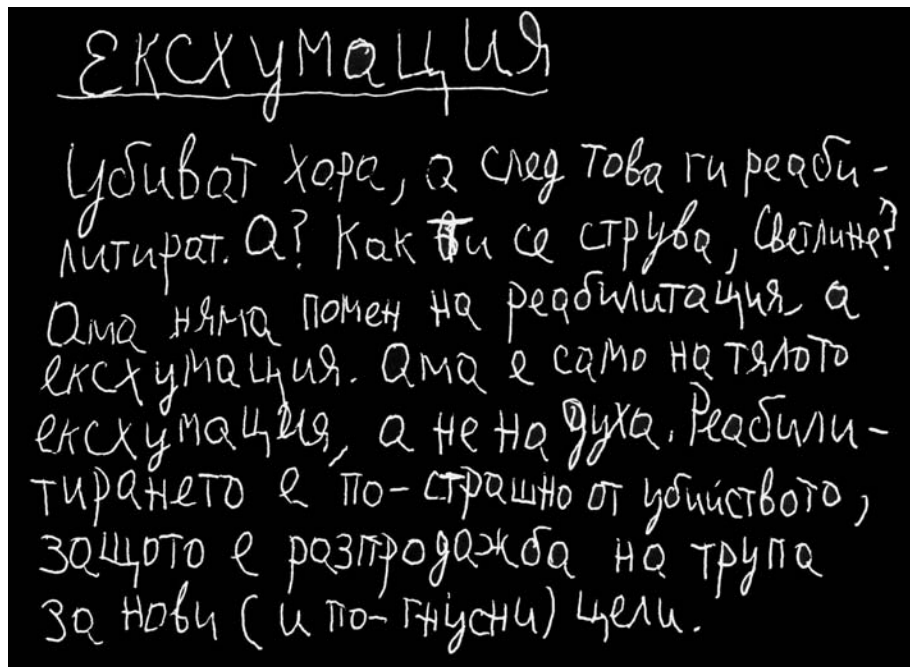 ЕКСХУМАЦИЯ
Убиват хора, а след това ги реаби-
литират. А? Как ти се струва, Светлине?
Ама няма помен на реабилитация, а
ексхумация. Ама е само на тялото
ексхумация, а не на духа. Реабили-
тирането е по-страшно от убийството,
защото е разпродажба на трупа
за нови (и по-гнусни) цели.